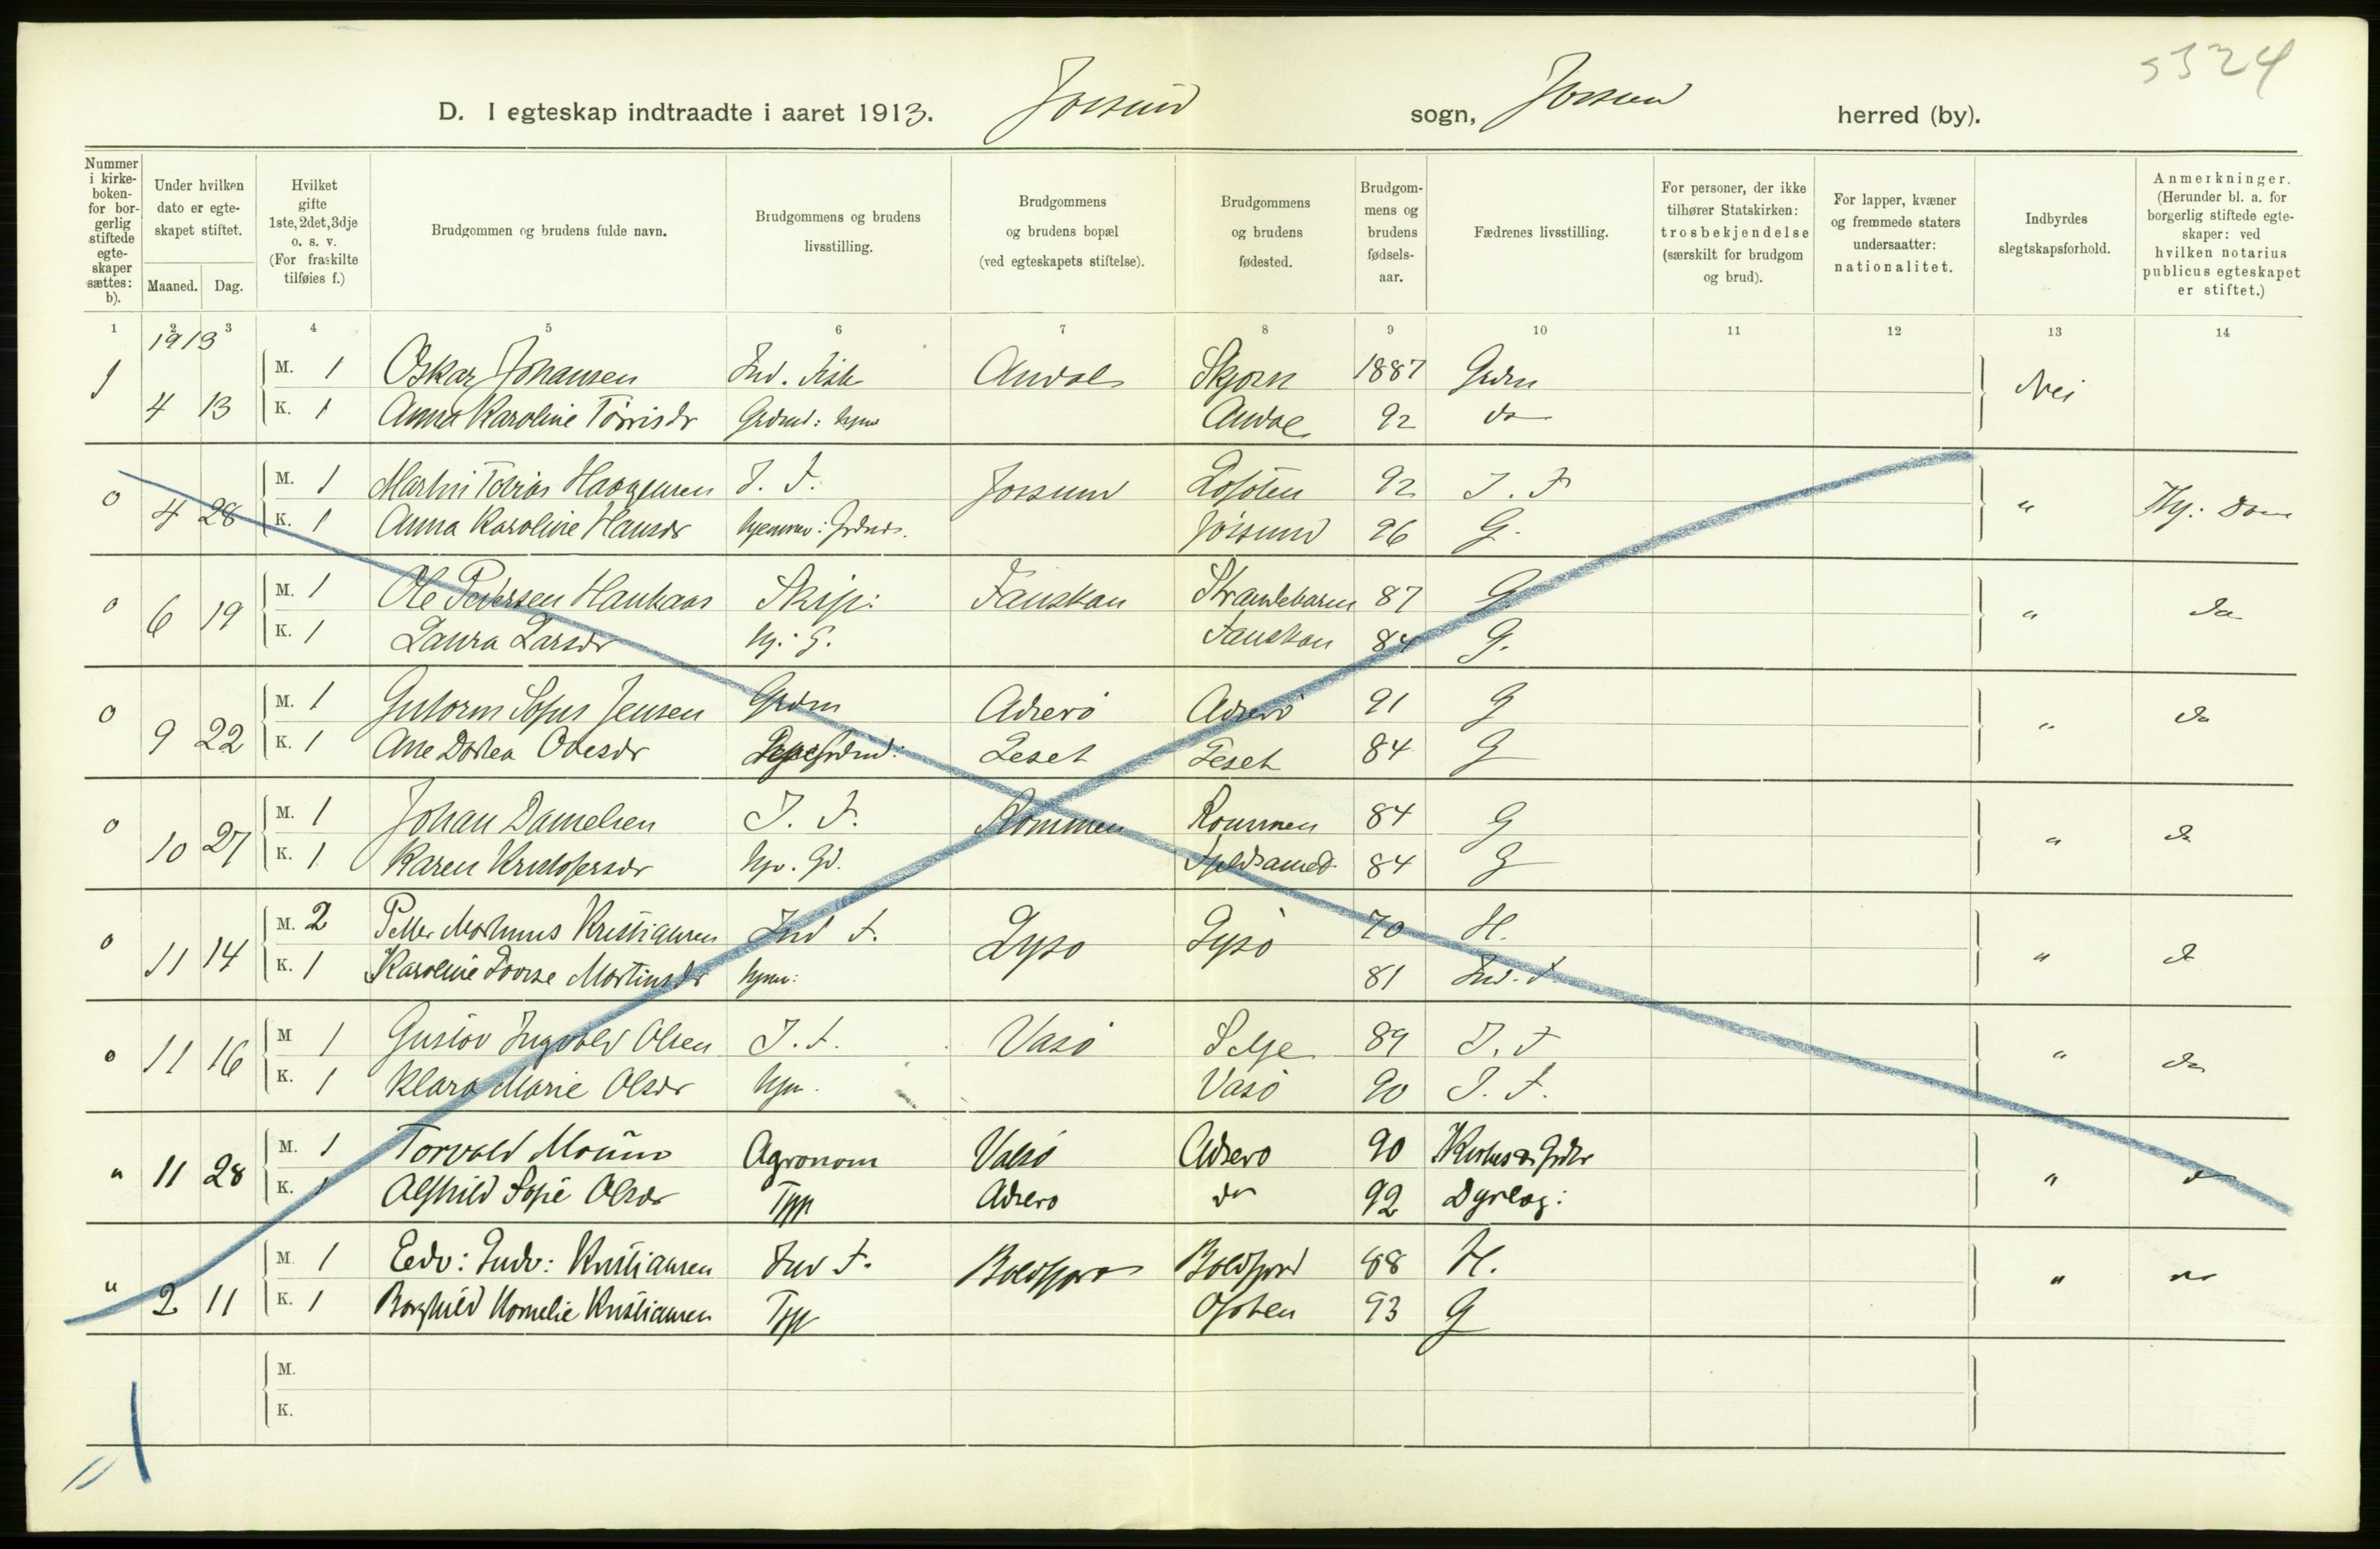 5324
D. I egteskap indtraadte i aaret 1913. Jossund sogn, Jossund herred (by).
Nummer i kirke-boken- for bor-gerlig stiftede egte-skaper sættes: b).
Under hvilken dato er egte-skapet stiftet. Maaned. Dag.
Hvilket gifte 1ste, 2det, 3dje o. s. v. (For fraskilte tilføies f.)
Brudgommen og brudens fulde navn.
Brudgommens og brudens livsstilling.
Brudgommens og brudens bopæl (ved egteskapets stiftelse).
Brudgommens og brudens fødested.
Brudgom-mens og brudens fødsels-aar.
Fædrenes livsstilling.
For personer, der ikke tilhører Statskirken: trosbekjendelse (særskilt for brudgom og brud).
For lapper, kvæner og fremmede staters undersaatter: nationalitet.
Indbyrdes slegtskapsforhold.
Anmerkninger. (Herunder bl. a. for borgerlig stiftede egte-skaper: ved hvilken notarius publicus egteskapet er stiftet.)
1 2 3 4 5 6 7 8 9 10 11 12 13 14
1913
1 M. 1 Oskar Johansen Ind. Fisk Skjørn 1887 Grdm Nei
4 13 K. 1 Anna Karoline Tørrisdr 92 do
0 M. 1 Martin Tobias Haagensen I. F. Jossund Lofoten 92 I. F " Hj:
4 28 K. 1 Anna Karoline Hansdr Jøssund 96 G.
0 M. 1 Ole Pedersen Haukaas Skip: Strandebarm 87 G. " da
6 19 K. 1 Laura Larsdr hj: G. 84 G.
0 M. 1 Gutorm Sofus Jensen Grdm Adserø Adserø 91 G " do
9 22 K. 1 Ane Dortea Olesdr Leset Leset 84 G
0 M. 1 Johan Danielsen I. F. Rømmen Rømmen 84 G " do
10 27 K. 1 Karen Kristofersdr 84 G
0 M. 2 Petter Martinus Kristiansen Ind F. Lysø Lysø 70 H. " d
11 14 K. 1 Karoline Lovise Martinsdr hjem: 81 Ind. F
0 M 1 Gustav Ingvald Olsen I. F. Vasø Selje 89 I. F " do
11 16 K. 1 Klara Marie Olsdr hjm. Vasø 90 I. F.
" 11 28 M. 1 Torvald Agronom Valsø Adserø 90 "
K. 1 Alfhild Sofie Olsdr Tjp Adserø do 92 Dyrlæg:
" M. 1 Edv: Ludv: Kristiansen Ind F. 88 H. " do
2 11 K. 1 Borghild Kornelie Kristiansen Tjp 93 G
M.
K.